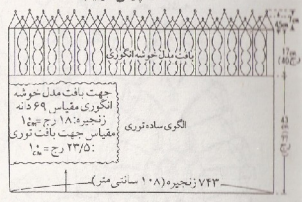 بافت مدل خوشه انگوری
جهت بافت مدل خوشه
انگوری مقیاس ۶۹ دانه
زنجیره: ۱۸ رج = ۱۰cm
مقیاس جهت بافت توری
: ۲۳/۵ رج = ۱۰cm
الگوی ساده توری
۷۴۳ زنجیره (۱۰۸ سانتی متر)